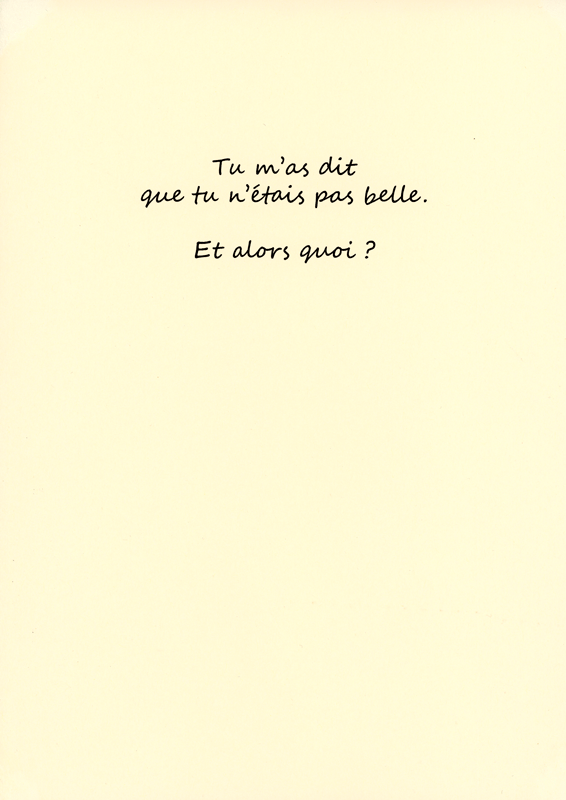 Tu m'as dit
que tu n'étais pas belle.
Et alors quoi ?